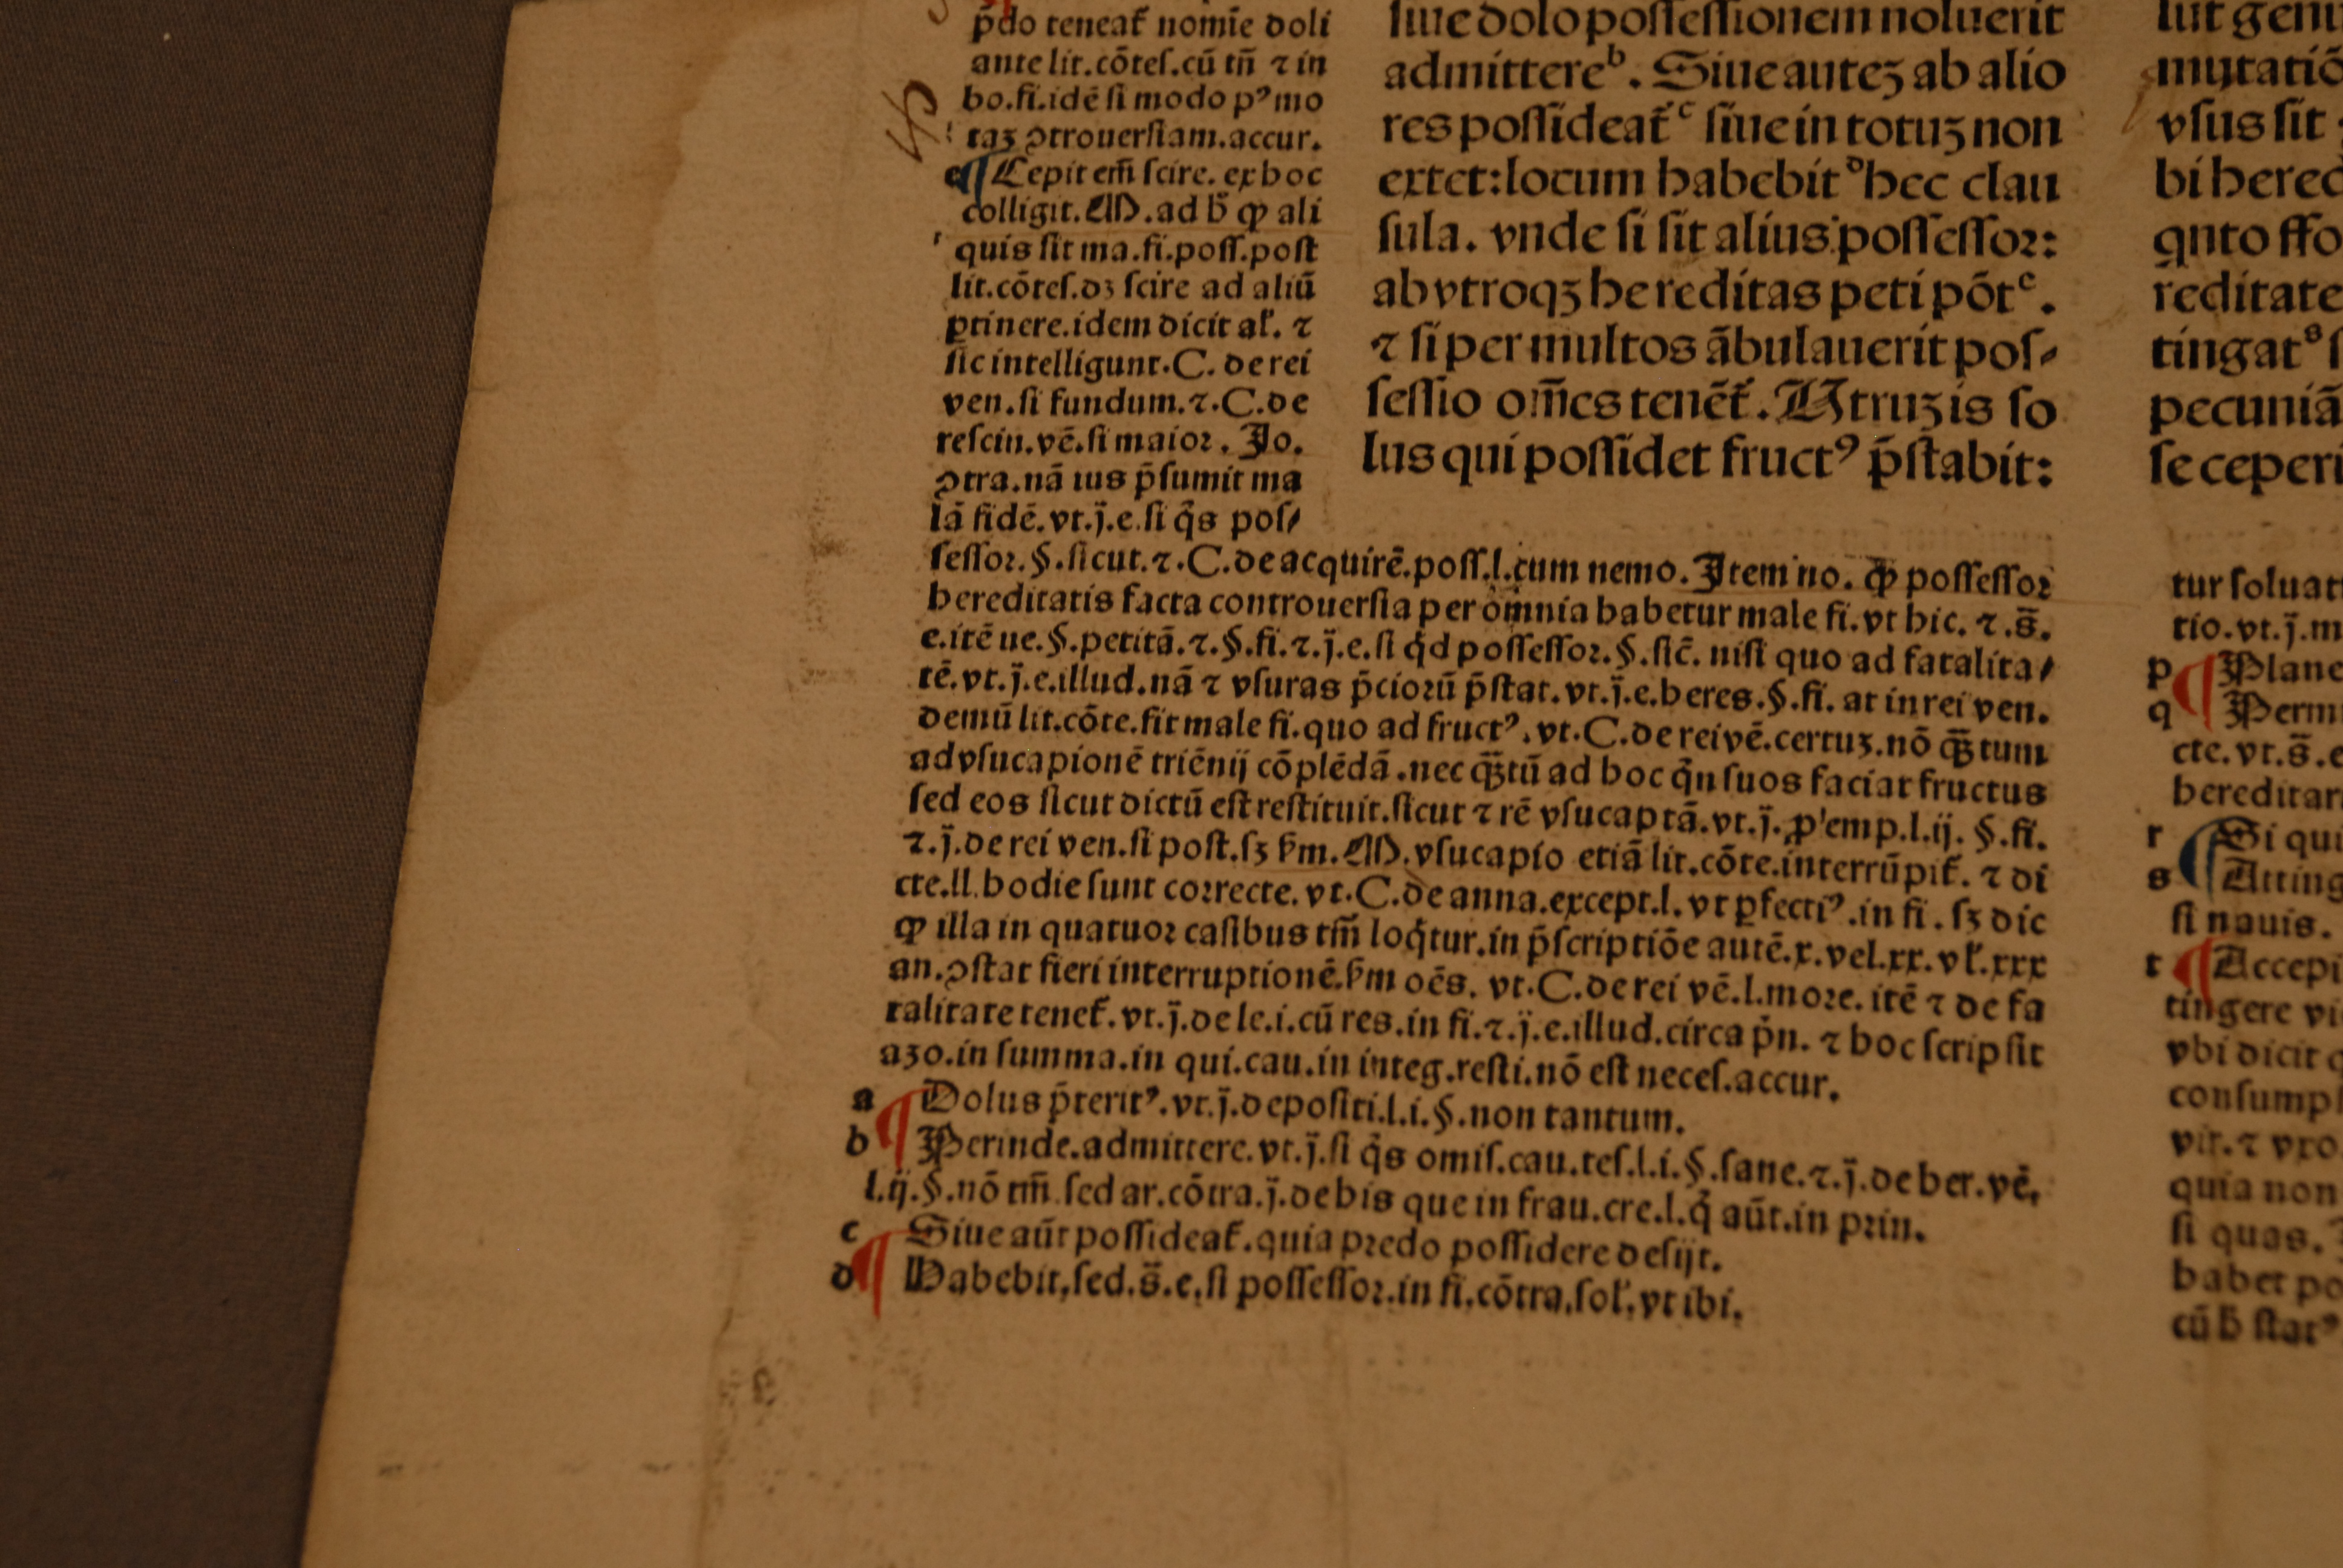 p̄do teneat᷑ nomīe doli
ante lit.cōtes.cū tn̄ ⁊ in
bo.fi.idē si modo pꝰ mo
taʒ ↄtrouersiam.accur.
e ¶ Cepit em̄ scire. ex hoc
colligit.M.ad h̄ ꝙ ali
quis sit ma.fi.poss.post
lit.cōtes.dʒ scire ad aliū
ꝑtinere.idem dicit al᷑. ⁊
sic intelligunt.C. de rei
ven.si fundum.⁊.C.de
rescin.vē.si maior. Jo.
ↄtra.nā ius p̄sumit ma
lā fidē.vt.j̄.e.si q̄s pos/
sessor.§.sicut.⁊.C.de acquirē.poss.l.cum nemo.Item no. ꝙ possessor
hereditatis facta controuersia per omnia habetur male fi.vt hic. ⁊.s̄.
e.itē ue.§.petitā.⁊.§.fi.⁊.j̄.e.si q̄d possessor.§.sic̄. nisi quo ad fatalita/
tē.vt.j̄.e.illud.nā ⁊ vsuras p̄ciorū p̄stat.vt.j̄.e.heres.§.fi. at in rei ven.
demū lit.cōte.fit male fi.quo ad fructꝰ.vt.C.de rei vē.certuʒ.nō q̄ʒtum
ad vsucapionē triēnij cōplēdā.nec q̄ʒtū ad hoc q̄n suos faciat fructus
sed eos sicut dictū est restituit.sicut ⁊ rē vsucaptā.vt.j̄.p'emp.l.ij. §.fi.
⁊.j̄.de rei ven.si post.sʒ ẜm.M.vsucapio etiā lit.cōte.interrūpit᷑. ⁊ di
cte.ll.hodie sunt correcte.vt.C.de anna.except.l.vt ꝑfectiꝰ.in fi.sʒ dic
ꝙ illa in quatuor casibus tm̄ loq̄tur.in p̄scriptiōe autē.x.vel.xx.vl᷑.xxx
an.ↄstat fieri interruptionē.ẜm oēs. vt.C.de rei vē.l.more.itē ⁊ de fa
talitate tenet᷑.vt.j̄.de le.i.cū res.in fi.⁊.j̄.e.illud.circa p̄n. ⁊ hoc scripsit
aʒo.in summa.in qui.cau.in integ.resti.nō est neces.accur.
a ¶ Dolus p̄teritꝰ.vt.j̄.depositi.l.i.§.non tantum.
b Perinde.admittere.vt.j̄.si q̄s omis.cau.tes.l.i.§.sane.⁊.j̄.de her.vē.
l.ij.§.nō tm̄ sed ar.cōtra.j̄.de his que in frau.cre.l.q̄ aūt.in prin.
c ¶ Siue aūt possideat᷑.quia predo possidere desijt.
d Habebit.sed.s̄.e.si possessor.in fi.cōtra.sol᷑.vt ibi.
siue dolo possessionem noluerit
admittere b. Siue auteʒ ab alio
res possideat᷑ c siue in totuʒ non
extet:locum habebit d hec clau
sula. vnde si sit alius possessor:
ab vtroqʒ hereditas peti pōt e.
⁊ si per multos ābulauerit pos/
sessio om̄es tenēt᷑. Utruʒ is so
lus qui possidet fructꝰ p̄stabit:
lut gen
mutatiō
vsus sit
bi hered
qnto ffo
reditate
tingat s
pecuniā
se ceperi
tur soluat
tio.vt.j̄.m
p ¶ Plane
q Permi
cte.vt.s̄.e
hereditar
r ¶ Si qui
s Atting
si nauis.
t ¶ Accepi
tingere vi
vbi dicit q
consump
vir.⁊ vxo
quia non
si quas.
habet po
cū h̄ statꝰ